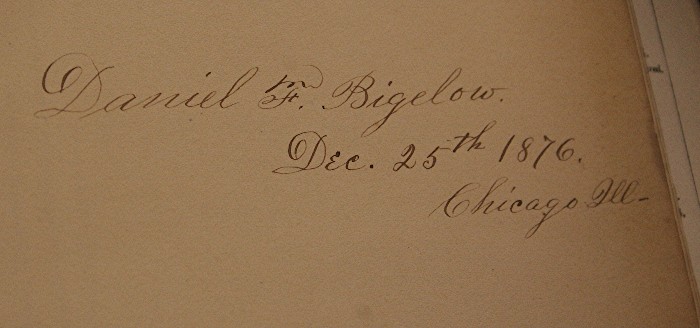 Daniel F. Bigelow.
Dec. 25th 1876.
Chicago Ill-